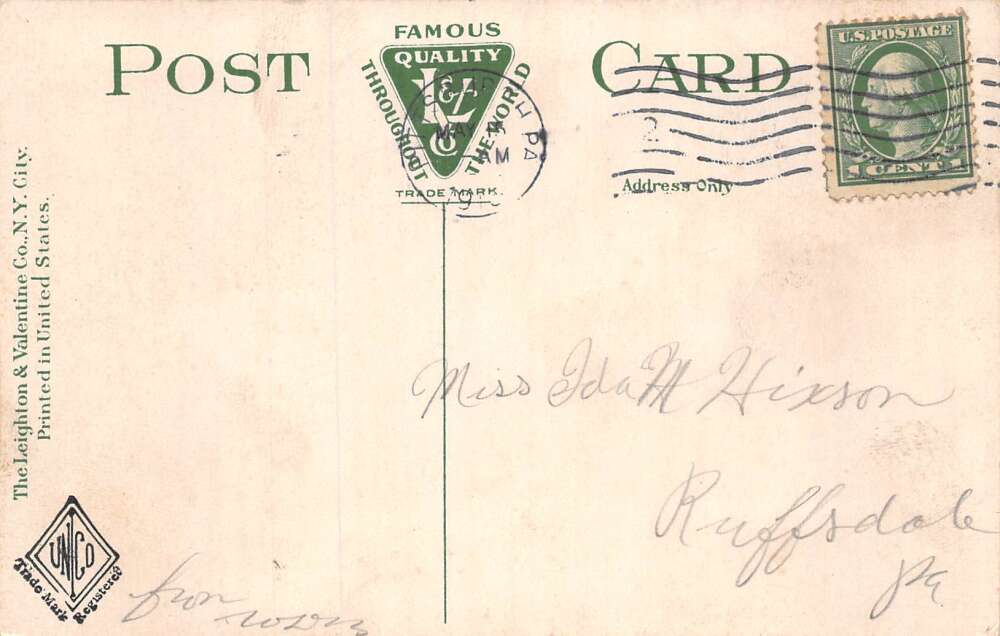 POST CARD
FAMOUS
QUALITY
THROUGHOUT
THE WORLD
L&V
Co
TRADE MARK.
MAY
AM
PA
2
U.S. POSTAGE
1 CENT 1
Address Only
The Leighton & Valentine Co., N.Y. City.
Printed in United States.
Miss Ida M Hixson
Ruffsdale
Pa
UNICO
Trade Mark Registered
from